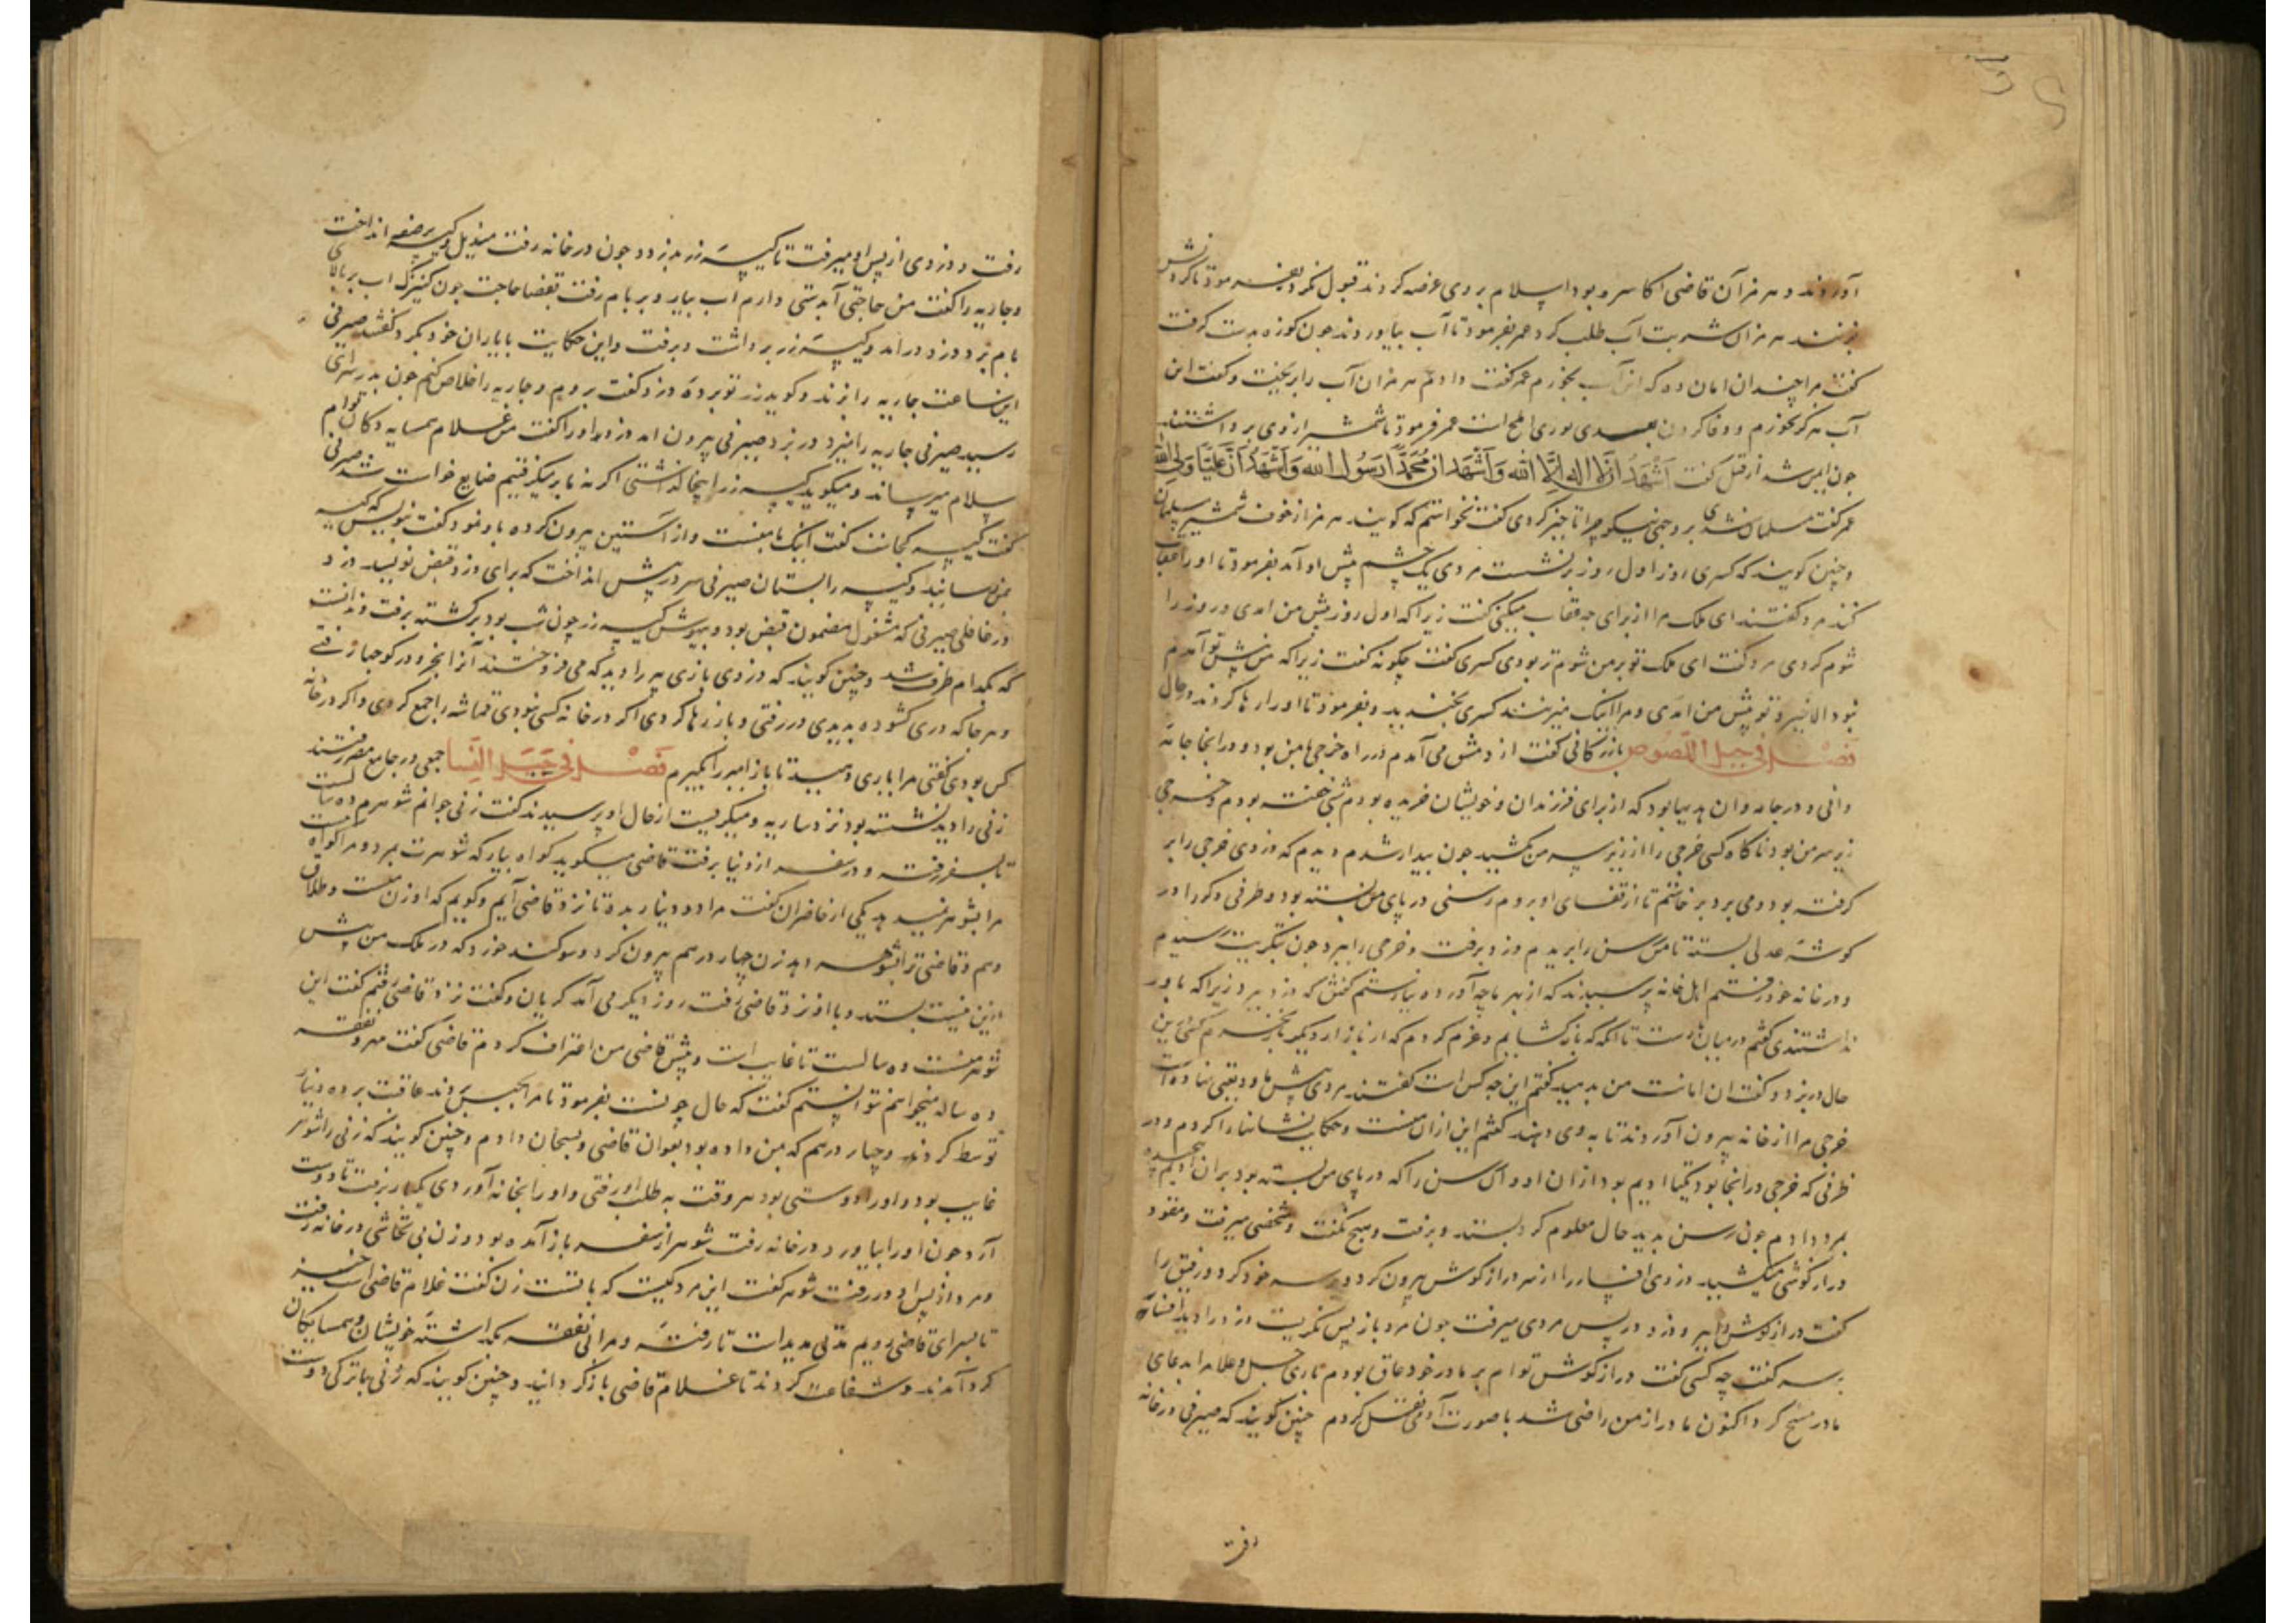 آوردند و هرمزان قاضی اکاسره بود اسلام بر وی عرضه کردند قبول نکرد بفرمود تا کردنش
بزنند هرمزان شربت آب طلب کرد عمر بفرمود تا آب بیاوردند چون کوزه بدست کرفت
کفت مرا چندان امان ده که این آب بخورم عمر کفت دادم هرمزان آب را بریخت و کفت این
آب هرکز نخورم و وفا کردن بعهدی ... عمر فرمود تا شمشیر از وی برداشتند
چون ایمن شد از قتل کفت اَشْهَدُ اَنْ لا اله اِلّا الله وَ اَشْهَدُ انّ مُحَمَّداً رَسُولُ الله وَ اَشْهَدُ اَنَّ عَلِیّاً وَلِیُّ الله
عمر کفت مسلمان شدی بر وجهی نیکو چرا تاخیر کردی کفت نخواستم که کویند هرمز از خوف شمشیر مسلمان
و چنین کویند که کسری روز اول روز برنشست مردی یک چشم پیش او آمد بفرمود تا او را عقاب
کنند مرد کفت ای ملک مرا از برای چه عقاب میکنی کفت زیرا که اول روز پیش من امدی و روز را
شوم کردی مرد کفت ای ملک تو بر من شوم تر بودی کسری کفت چکونه کفت زیرا که من پیش تو آمدم
نبود الا خیر و تو پیش من امدی و مرا اینک میزنند کسری بخندید و بفرمود تا او را رها کردند در حال
فصل فی حیل اللصوص بازرکانی کفت از دمشق می آمدم در راه خرجی با من بود و در انجا جامه
دانی و در جامه دان هدیها بود که از برای فرزندان و خویشان خریده بودم شبی خفته بودم و خرجی
زیر سر من بود ناکاه کسی خرجی را از زیر سر من کشید چون بیدار شدم دیدم که دزدی خرجی را بر
کرفته بود و می برد برخاستم تا از قفای او بروم رسنی در پای من بسته بود و طرفی دکر را در
کوشه عدلی بسته تا من رسن را بریدم دزد برفت و خرجی را ببرد چون بتکریت رسیدم
و در خانه خود رفتم اهل خانه پرسیدند که از بهر ما چه آورده نیارستم کفتن که دزد ببرد زیرا که باور
نداشتندی کفتم در میان بارست تا انکه که باز کشایم و عزم کردم که از بازار دیکر باره بخرم کسی در این
حال در بزد و کفت ان امانت من بدهید کفتم این چه کس است کفتند مردی پیش ما ودیعتی نهاده است
خرجی مرا از خانه بیرون آوردند تا به وی دهند کفتم این از ان منست و حکایت نشانها را کردم و در
ظرفی که خرجی در انجا بود ... بود از ان او و آن رسن را که در پای من بسته بود بر ان ...
بمرد دادم چون رسن بدید حال معلوم کرد بستد و برفت و هیچ نکفت و شخصی میرفت و مقود
درازکوشی میکشید دزدی افسار را از سر درازکوش بیرون کرد و در سر خود کرد و رفیق را
کفت درازکوش را ببر و دزد در پس مرد می رفت چون مرد باز پس نکریست دزد را دید افسار
بر سر کفت چه کسی کفت درازکوش توام بر مادر خود عاق بودم باری جل و علا مرا بدعای
مادر مسخ کرد اکنون مادر از من راضی شد با صورت آدمی نقل کردم چنین کویند که صیرفی در خانه
رفت
رفت و دزدی از پس او میرفت تا کیسه زر بدزدد چون در خانه رفت مندیل و کیسه بر صفه انداخت
و جاریه را کفت من حاجتی آبدستی دارم اب بیار و بر بام رفت بقضا حاجت چون کنیزک اب بر بالای
بام برد دزد درآمد و کیسه زر برداشت و برفت و این حکایت با یاران خود بکرد کفتند صیرفی
این ساعت جاریه را بزند و کوید زر تو برده دزد کفت بروم و جاریه را خلاص کنم چون بدر سرای
رسید صیرفی جاریه را میزد در بزد صیرفی بیرون امد دزد او را کفت من غلام همسایه دکان توام
سلام میرساند و میکوید کیسه زر اینجا کذاشتی اکر نه ما برمیکرفتیم ضایع خواست شد صیرفی
کفت کیسه کجاست کفت اینک با منست و از آستین بیرون کرده باو نمود کفت بنویس که کیسه
بمن رسانید و کیسه را بستان صیرفی سر در پیش انداخت که برای دزد قبض نویسد دزد
در غافلی صیرفی که مشغول مضمون قبض بود و بیهوش کیسه زر چون شب بود برکشته برفت و ندانست
که بکدام طرف شد و چنین کویند که دزدی بازی پیر را دید که می فروختند آنرا بخرید و در کوچها رفتی
و هر جا که دری کشوده بدیدی در رفتی و باز رها کردی اکر در خانه کسی نبودی قماشه را جمع کردی و اکر در خانه
کس بودی کفتی مرا یاری دهید تا باز امیر را بکیرم فصل فی حیل النسا جمعی در جامع مصر رفتند
زنی را دیدند نشسته بود نزد ساریه و میکریست از حال او پرسیدند کفت زنی جوانم شوهرم ده سالست
تا بسفر رفته و در سفر از دنیا برفت قاضی میکوید کواه بیار که شوهرت بمرد و مرا کواه نیست
مرا بشوهر نمیدهد یکی از حاضران کفت مرا دو دینار بده تا نزد قاضی آیم و کویم که او زن منست و طلاق
دهم و قاضی ترا بشوهر دهد زن چهار درهم بیرون کرد و سوکند خورد که در ملک من بیش
از این نیست بستد و با او نزد قاضی رفت روز دیکر می آمد کریان و کفت نزد قاضی رفتم کفت این
شوهر منست ده سالست تا غایب است و پیش قاضی من اعتراف کردم قاضی کفت مهر و نفقه
ده ساله میخواهم نتوانستم کفت که حال چونست بفرمود تا مرا بحبس بردند عاقبت بر ده دینار
توسط کردند و چهار درهم که بمن داده بود بعوان قاضی و سجان دادم و چنین کویند که زنی را شوهر
غایب بود و او را دوستی بود هر وقت به طلب او رفتی و او را بخانه آوردی یکبار برفت تا دوست
آرد چون او را بیاورد در خانه رفت شوهر از سفر باز آمده بود و زن بی تحاشی در خانه رفت
و مرد از پس او در رفت شوهر کفت این مرد کیست که با تست زن کفت غلام قاضی است خیز
تا بسرای قاضی رویم مدتی مدید است تا رفته و مرا بی نفقه بکذاشته خویشان و همسایکان
کرد آمدند و شفاعت کردند تا غلام قاضی باز کردانید و چنین کویند که زنی با ترکی دوست